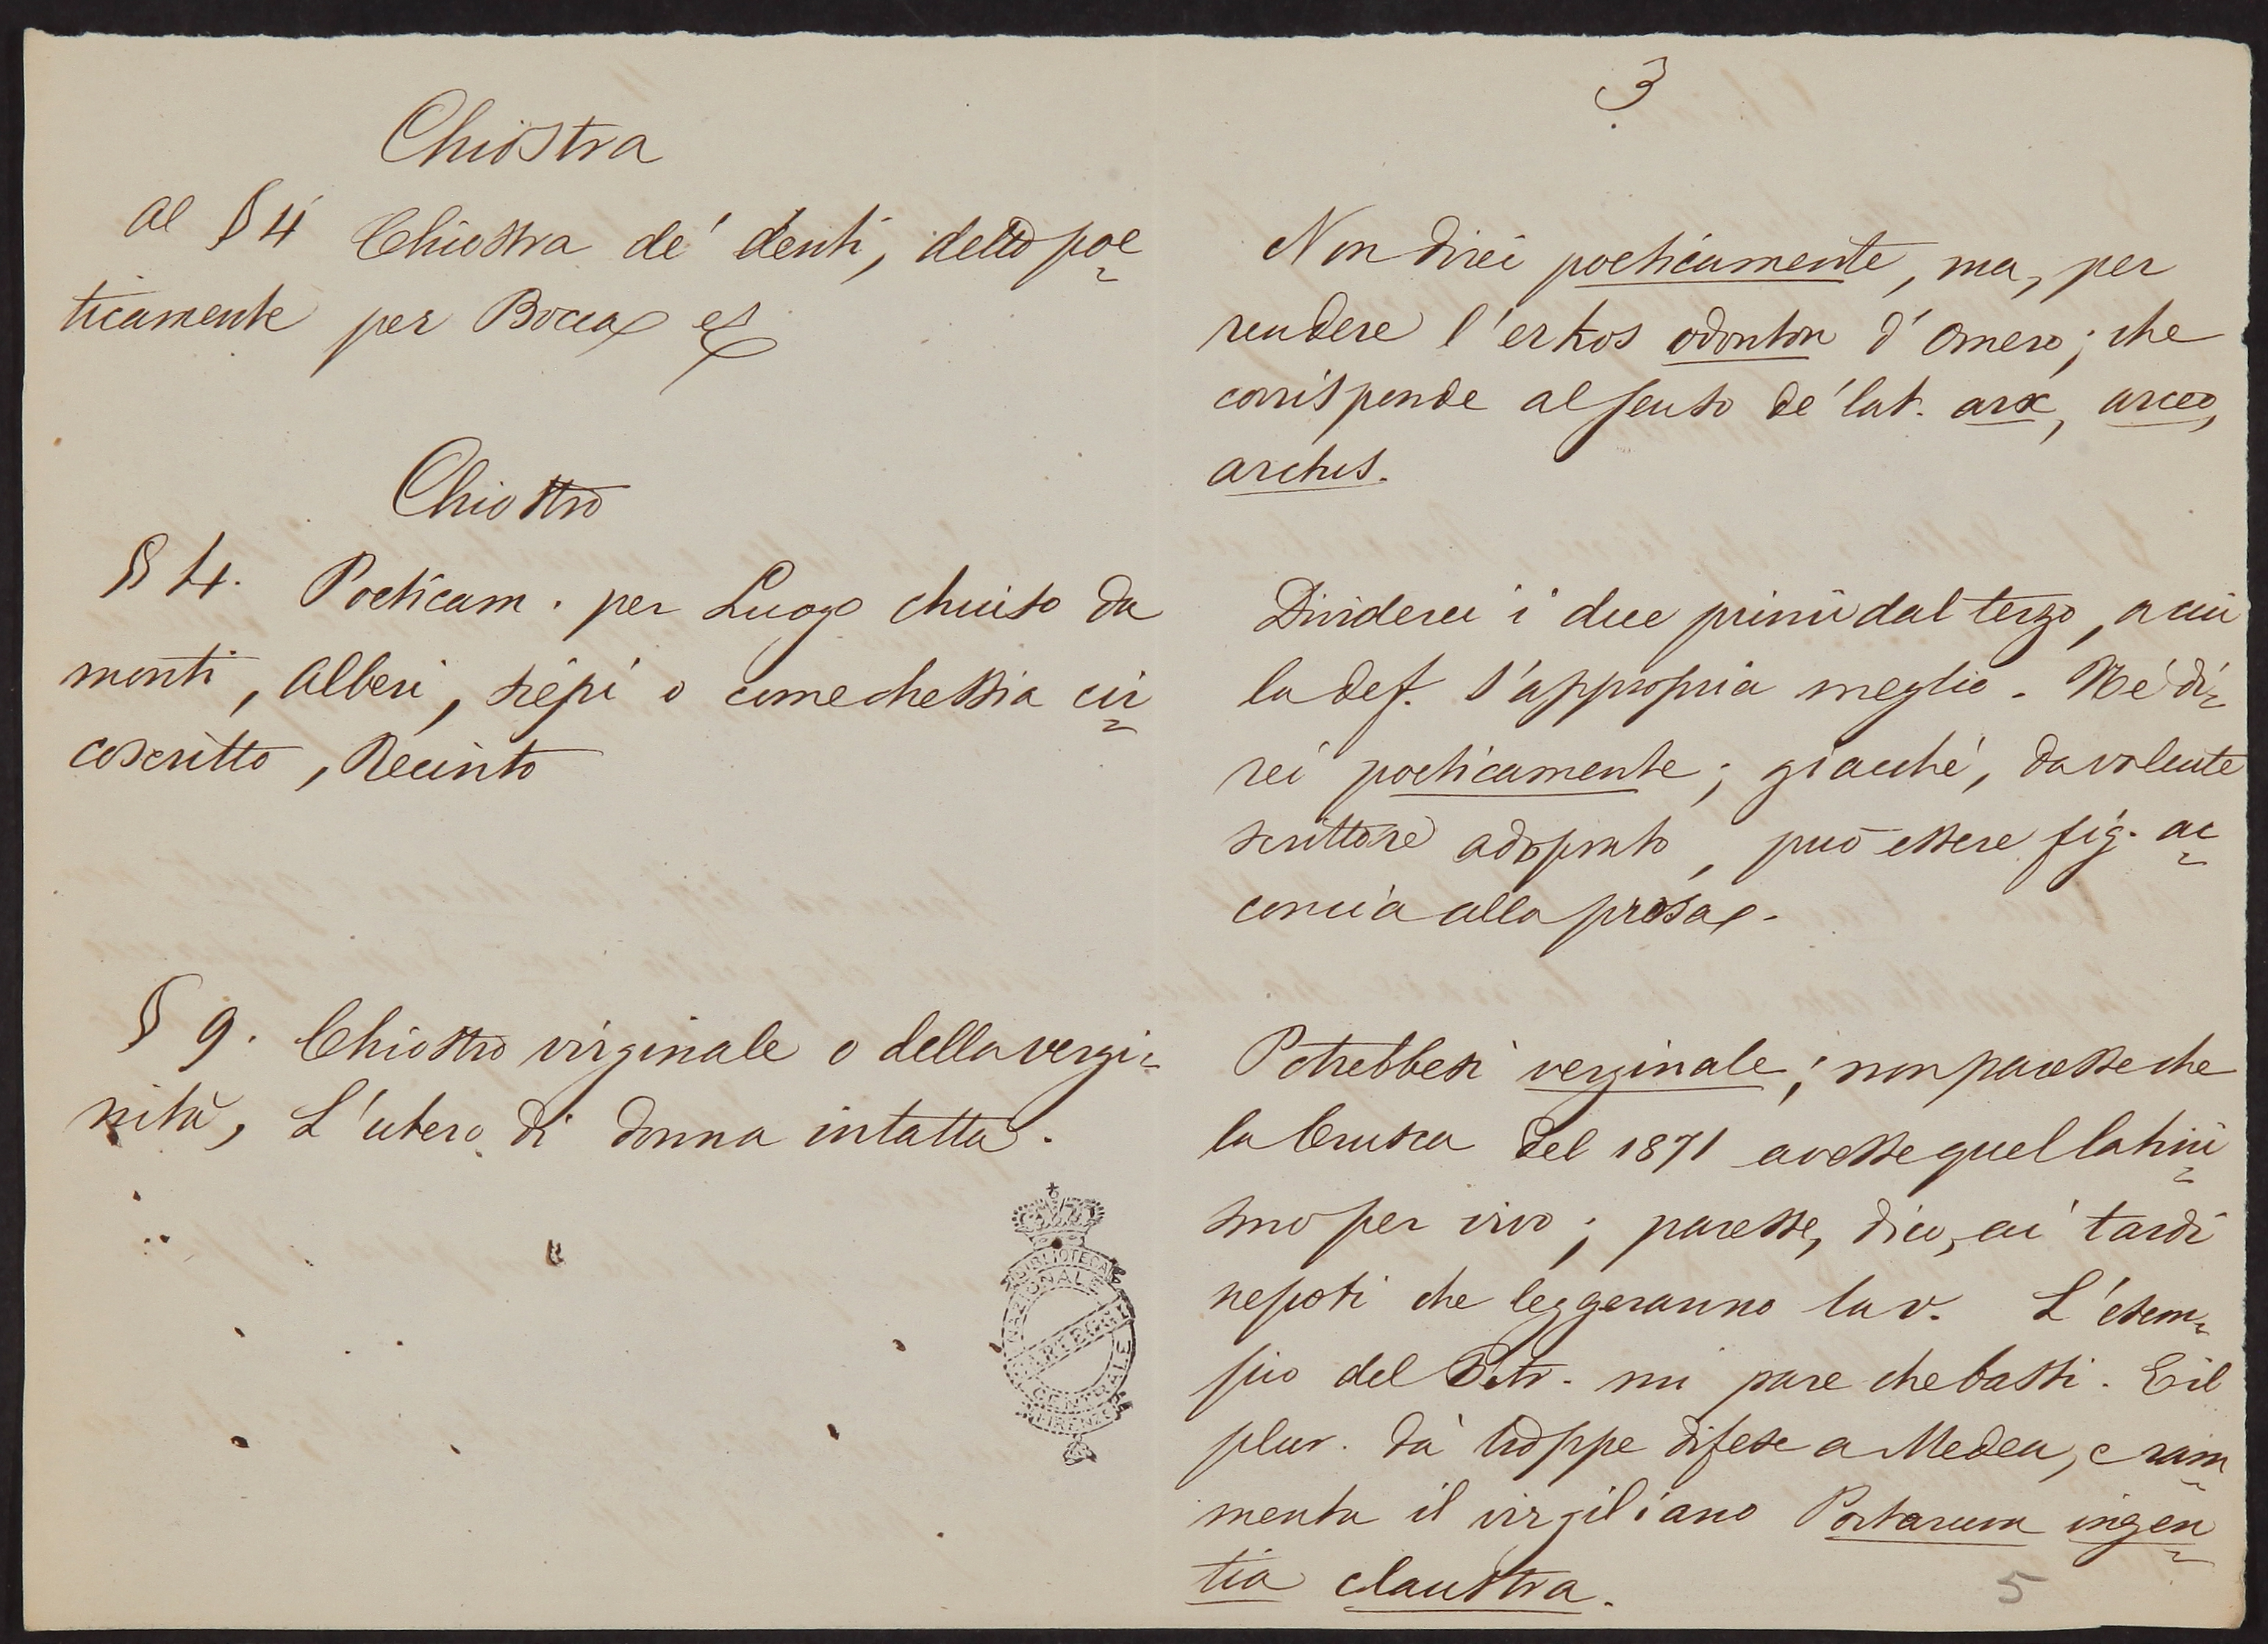 Chiostra
al § 4 Chiostra de' denti, detto poe=
ticamente per Bocca ec
Chiostro
§ 4. Poeticam. per Luogo chiuso da
monti, alberi, siepi o comechessia cir=
coscritto, Recinto
§ 9. Chiostro virginale o della vergi=
nità, L'utero di donna intatta.
BIBLIOTECA
NAZIONALE
CARTEGGI
CENTRALE
FIRENZE
3
Non direi poeticamente, ma, per
rendere l'erkos odonton d'Omero; che
corrisponde al senso de' lat. arx, arceo,
arctus.
Dividerei i due primi dal terzo, a cui
la def. s'appropria meglio. Nè di=
rei poeticamente; giacchè, da valente
scrittore adoprato, può essere fig. ac=
concia alla prosa.
Potrebbesi verginale; non paresse che
la Crusca del 1871 avesse quel latini=
smo per vivo; paresse, dico, ai tardi
nepoti che leggeranno la v. L'esem=
pio del Petr. mi pare che basti. E il
plur. dà troppe difese a Medea, e ram=
menta il virgiliano Portarum ingen=
tia claustra.
5